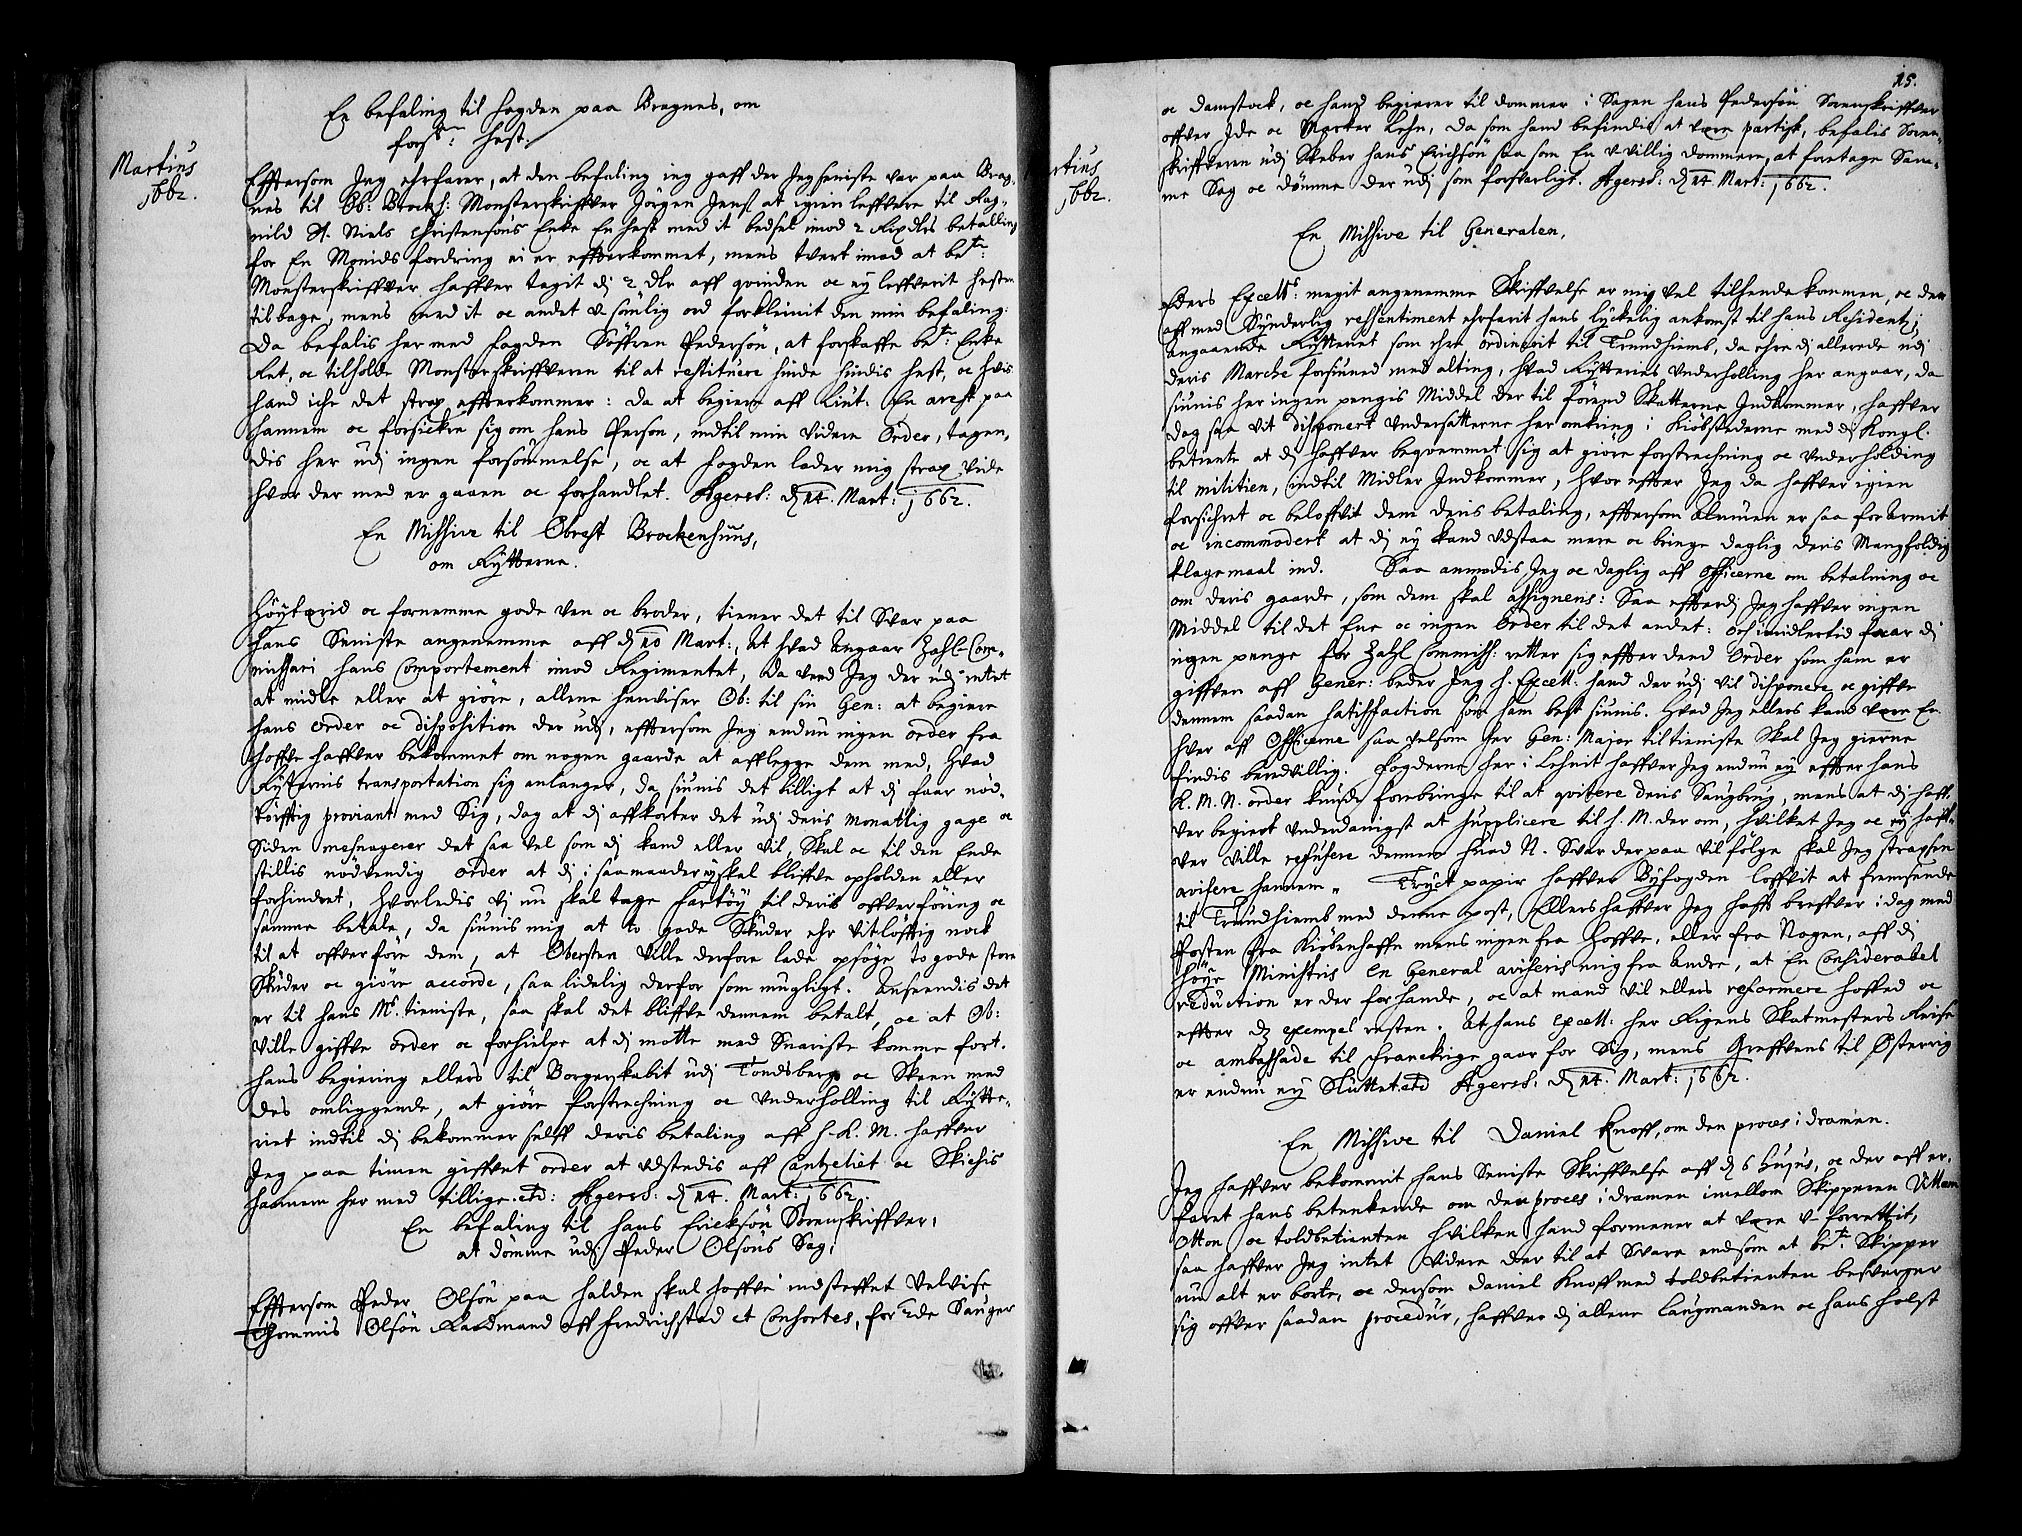 Martius
1662.
En befaling til fogden paa Bragnes, om
fors: hest.
Effttersom Jeg ehrfarer, at den befaling ieg gaff der Jeg seniste var paa Brag-
nes til Ob: Brockh: Monsterskriffver Jörgen Jens: at igien leffvere til Rag-
nild Sl. Niels Christensöns Enke En hest med it bedsel imod 2 Rixdlrs betalling
for En Monids fordring ei er effterkommet, mens tvert imod at bete:
Monsterskriffver haffver tagit dj 2 dlr aff qvinden oc ey leffverit hesten
tilbage, mens med it oc andet u-sömlig ord forkleinit den min befaling.
Da befalis her med fogden Söffren Pedersön, at forskaffe bete: Enke
Ret, oc tilholde Monsterskriffveren til at restituere hinde hindis hest, oc hvis
hand iche det strax effterkommer: da at begiere aff Liut: En arest paa
hannem oc forsickre sig om hans Person, indtil min videre Order, tagen-
dis her udj ingen forsömmelse, oc at fogden lader mig strax vide
hvor der med er gaaen oc forhandlet. Agersh: d 14. Mart: 1662.
En Missive til Obrest Brockenhuus,
om Rytterne.
Höytærid oc fornemme gode Ven oc broder, tiener det til Svar paa
hans Seniste angenemme aff d 10 Mart:, At hvad Angaar Zahl-Com-
missari hans Comportement imod Regimentet, da veed Jeg der udj intet
at midle eller at giöre, allene henviser Ob: til sin Gen: at begiere
hans order oc disposition der udj, effttersom Jeg endnu ingen order fra
hoffve haffver bekommet om nogen gaarde at afflegge dem med, Hvad
Rytternis transportation sig anlanger, da siunis det billigt at dj faar nöd-
törfftig proviant med Sig, dog at dj affkorter det udj deris monatlig gage oc
Siden mesnagerer det saa vel som dj kand eller vil, Skal oc til den Ende
stillis nödvendig order at dj i saamaader ey skal bliffve opholden eller
forhindret, Hvorledis vj nu skal tage fartöy til deris offverföring oc
samme betale, da siunis mig at to gode Skuder ehr vitlöfftig nock
til at offverföre dem, at Obersten ville derfore lade opsöge to gode store
Skuder oc giöre accorde, saa lidelig derfor som mugligt. Anseendis det
er til hans Mt. tieniste, saa skal det bliffve dennem betalt, oc at Ob:
ville giffve order oc forhielpe at dj motte med Snariste komme fort.
hans begiering ellers til Borgerskabit udj Tondsberg oc Skeen med
des omliggende, at giöre forstrechning oc Underholling til Rytte-
riet indtil dj bekommer self deris betaling aff h. K. M. haffver
Jeg paa timen giffvet order at udstedis aff Cantzeliet oc Skichis
hannem her med tillige etc: Agersh: d 14. Mart: 1662.
En befaling til hans Ericksön Sorenskriffver,
at dömme udj Peder Olsöns Sag.
Effttersom Peder Olsön paa halden skal haffve indsteffnet Velvise
Thommis Olsön Raadmand aff Fredrichstad et Consortes, for 2de Sauger
15.
rtius
1662.
oc damstock, oc hand begierer til dommer i Sagen hans Pedersön Sorenskriffver
offver Ide oc Marker Lehn, da som hand befindis at være partisk, befalis Soren-
skriffveren udj Skeber hans Erichsön saa som En u-villig dommere, at foretage Sam-
me Sag oc dömme der udj som forsvarligt. Agersh: d 14 Mart: 1662.
En Missive til Generalen.
Eders Excells: megit angenemme Skriffvelse er mig vel tilhende kommen, oc der
aff med Synderlig ressentiment ehrfarit hans lyckelig ankomst til hans Residentz;
angaaende Rytteriet som ehre ordinerit til Trundhiem, da ehre dj allerede udj
deris Marche forsiuned med alting, hvad Rytternis Underholling her angaar, da
siunis her ingen pengis Middel der til förend Skatterne Indkommer, haffver
dog saa vit disponert Undersatterne her omkring i Kiöbstederne med dj Kongl:
betiente at dj haffver beqvemmet sig at giöre forstrechning oc Underholding
til militien, indtil Midler Indkommer, hvor effter Jeg da haffver igien
forsichret oc beloffvit dem deris betaling, effttersom Almuen er saa forarmit
oc incommodert at dj ey kand udstaa mere oc bringe daglig deris Mangfoldig
klagemaal ind. Saa anmodis Jeg oc daglig aff officerne om betalning oc
om deris gaarde, som dem skal assignens: Saa efftterdj Jeg haffver ingen
Middel til det Ene oc ingen order til det andet: och imidlertid faar dj
ingen penge for Zahl Commiss: retter sig effter dend order som ham er
giffven aff Gener: beder Jeg h. Excell: hand der udj vil disponere oc giffve
dennem saadan satisfaction som ham best siunis. Hvad Jeg ellers kand være En
hver aff Officerne saa velsom her Gen: Major til tieniste Skal Jeg gierne
findis beredvillig. Fogderne her i Lehnit haffver Jeg endnu ey effter hans
K. M. N. order kunde forebringe til at qvitere deris Saugbrug, mens at dj haff-
ver begiert Underdanigst at supplicere til h. M. der om, hvilket Jeg oc ey haff-
ver ville refusere dennem hvad N. Svar der paa vil fölge skal Jeg straxsen
avisere hannem. Tryct papir haffver Byfogden loffvit at fremsende
til Trundhiemb med denne post, Ellers haffver Jeg hafft breffver i dag med
Posten fra Kiöbenhaffn mens ingen fra Hoffve, eller fra Nogen, aff dj
höye Ministris en General aviseris mig fra andre, at En Considerabel
reduction er der forhande, oc at mand vil ellers reformere hoffved oc
effter dz exempel resten. At hans excell: her Rigens Skatmesters Reise
oc ambassade til Franckrige gaar for Sig, mens Greffvens til Österrig
er endnu ey Sluttet. etc Agersh: d 14. Mart: 1662.
En Missive til Daniel Knoff, om den proces i dramen.
Jeg haffver bekommit hans Seniste Skriffvelse aff d 6 hujus, oc der aff er-
faret hans betenkende om den proces i dramen imellom Skipperen Villam
Otton oc toldbetienten hvilken hand formener at være u-forrettzit,
saa haffver Jeg intet videre der til at Svare endsom at bete: Skipper
nu alt er borte, oc dersom Daniel Knoff med toldbetienten besverger
sig offver saadan procedur, haffver dj allene Laugmanden oc hans Holst